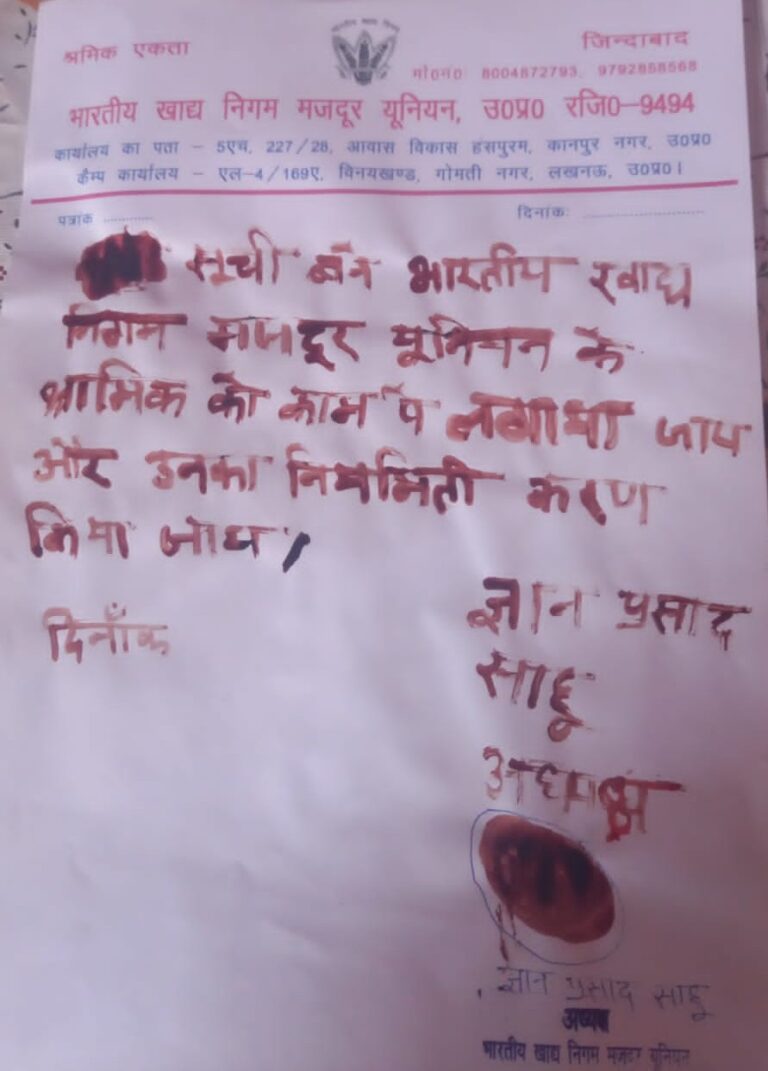 श्रमिक एकता
जिन्दाबाद
मो0नं0: 8004872793, 9792858568
भारतीय खाद्य निगम मजदूर यूनियन, उ0प्र0 रजि0-9494
कार्यालय का पता - 5एच, 227/28, आवास विकास हंसपुरम, कानपुर नगर, उ0प्र0
कैम्प कार्यालय - एल-4/169ए, विनयखण्ड, गोमती नगर, लखनऊ, उ0प्र0।
पत्रांक ............
दिनांकः ........................
सूची बने भारतीय खाद्य
निगम मजदूर यूनियन के
श्रामिक को काम पे लगाया जाय
और उनका नियमिती करण
किया जाय।
दिनाँक
ज्ञान प्रसाद
साहू
अध्यक्ष
ज्ञान प्रसाद साहू
अध्यक्ष
भारतीय खाद्य निगम मजदूर यूनियन